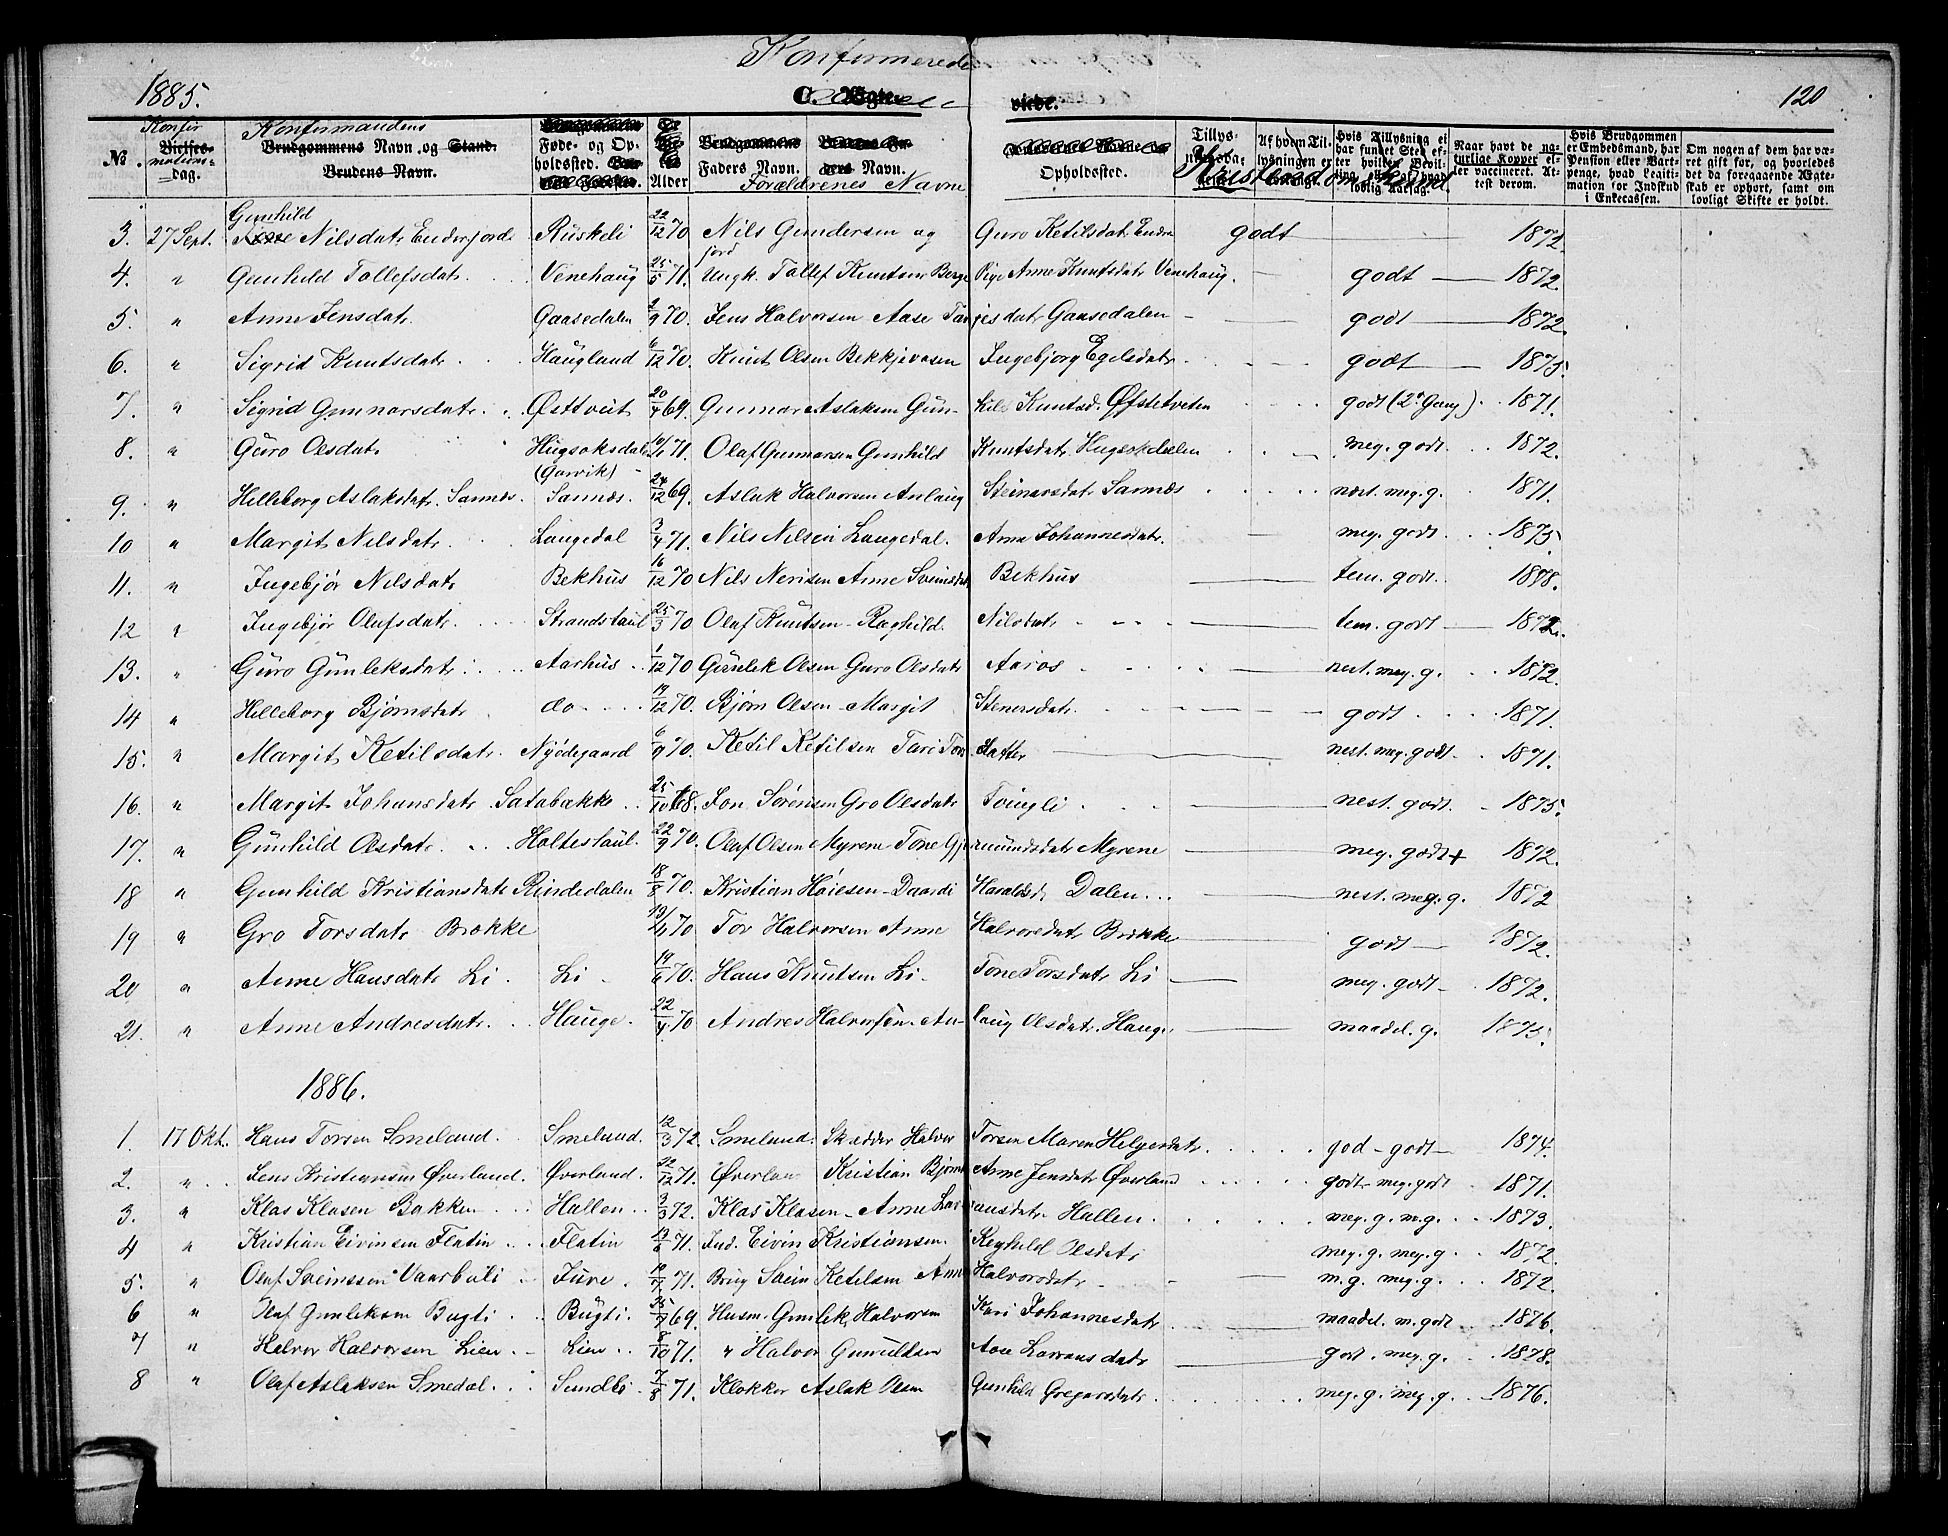 Konfirmerede
1885. C. Egte- viede. 120
Konfirmationsdag. Konfirmandens Navn og Føde- og Opholdssted. Alder Faders Navn. Navn. Forældrenes Navne Opholdssted. Kristendoms Kundsk.
№ Vielses-dag. Brudgommens Navn og Stand. Brudens Navn.
Tillysningsdatoerne. Af hvem Tillysningen er forlangt. Hvis Tillysning ei har fundet Sted efter hvilken Bevilling, eller af hvad lovlig Aarsag. Naar havt de naturlige Kopper eller vaccineret. Attest derom. Hvis Brudgommen er Embedsmand, har Pension eller Vartpenge, hvad Legitimation for Indskud i Enkecassen. Om nogen af dem har været gift før, og hvorledes det da foregaaende Ægteskab er ophørt, samt om lovligt Skifte er holdt.
3. 27 Sept. Gunhild Nilsdatr Enderjord Ruskeli 22/12 70 Nils Gundersen og Guro Ketilsdatr Endrejord godt — 1872.
4. " Gunhild Tollefsdatr. Venehaug 25/5 71. Ungk. Tollef Knutsen Berge Pige Anne Knutsdatr Venehaug. — godt — 1872.
5. " Anne Jensdatr. Gaasedalen 2/9 70. Jens Halvorsen Aase Tarjesdatr Gaasedalen - — godt — 1872.
6. " Sigrid Knutsdatr. Haugland 6/12 70. Knut Olsen Bekkjevasen Ingebjorg Egelsdatr. — godt — 1875.
7. " Sigrid Gunnarsdatr. Østtveit 20/4 69. Gunnar Aslaksen Gunhild Knutsd. Øfstetveten godt (2n Gang) 1871.
8. " Guro Olsdatr Hugsoksdalen (Garvik) 71. Olaf Gunnarsen Gunhild Knutsdatr Hugsokdalen meg. godt. 1872.
9. " Hilleborg Aslaksdatr. Sannæs. Sannæs. 24/12 69. Aslak Halvorsen Anlaug Steinarsdatr Sannæs næst. meg. g. 1871.
10 " Margit Nilsdatr. Langedal 3/4 71. Nils Nilsen Langedal. Anne Johannesdatr. meg. godt. 1875.
11. " Ingebjør Nilsdatr Bekhus 16/12 70 Nils Nerisen Anne Sveinsdatr Bekhus — tem. godt. 1878.
12 " Ingebjør Olafsdatr. Strandstaul 25/3 70 Olaf Knutsen - Raghild. Nilsdatr — tem. godt — 1872.
13. " Guro Gunleksdatr. Aarhus 1/12 70 Gunlek Olsen Guro Olsdatr Aaros — nest. meg. g. 1872.
14 " Hilleborg Bjørnsdatr do 19/12 70. Bjørn Olsen - Margit Stenersdatr. — godt. 1871.
15. " Margit Ketilsdatr. Nyødegaard 6/9 70. Ketil Ketilsen Tari Slatter — nest. meg. godt. 1871.
16. " Margit Johansdatr. Satabakke 25/10 68. Jon Sørensen Gro Olsdatr Tvingli — nest. godt. 1875.
17. " Gunhild Olsdatr. Holtestaul. 22/9 70. Olaf Olsen Myrene Tone Gjermundsdatr Myrene — meg. godt + 1872.
18 " Gunhild Kristiansdatr Rindedalen 18/8 70. Kristian Høiesen - Daardi Haraldsd. Dalen nest. meg. g. 1872
19 " Gro Torsdatr Brække 70 Tor Halvorsen Anne Halvorsdatr Brække — godt — 1872.
20 " Anne Hansdatr Li. Li - 19/6 70. Hans Knutsen Li - Tone Torsdatr Li — meg. godt - 1872.
21. " Anne Andresdatr. Hauge. 22/4 70 Andres Halvorsen - Anlaug Olsdatr. Hauge — maadel. g. 1875.
1886.
1. 17 Okt. Hans Torsen Smeland. Smeland. 12/3 72. Smeland. Skædder Halvor Torsen Maren Helgesdatr. god - godt — 1874.
2. " Jens Kristiansen Øverland. Øverland. 22/12 71. Øverlan Kristian Bjørn Anne Jensdatr Øverland godt. meg. godt 1871.
3. " Klas Klasen Bakken Hallen 3/3 72. Klas Klasen - Anne Laransdatr. Hallen. meg. g. m. g. 1873.
4 " Kristian Eivinsen Flatin Flatin 71. Ind. Eivin Kristiansen. Reghild Olsdatr meg. g. meg. g. 1872.
5. " Olaf Sveinssen Vaarbuli Jure 71. Brug Svein Ketilsen Anne Halvorsdatr — m. g. meg. g. 1872.
6 " Olaf Gunleksen Bugti Bugti 25/7 69. Husm. Gunlek Halvorsen Kari Johannesdatr maadel. m. godt 1876.
7 " Halvor Halvorsen Lien Lien 8/10 71. " Halvor Gunulksen Aase Laransdatr — godt. meg. g. 1878.
8 " Olaf Aslaksen Smedal. Sundbø 7/8 71. Klokker Aslak Olsen Gunhild Gregarsdatr. meg. g. meg. g. 1876.